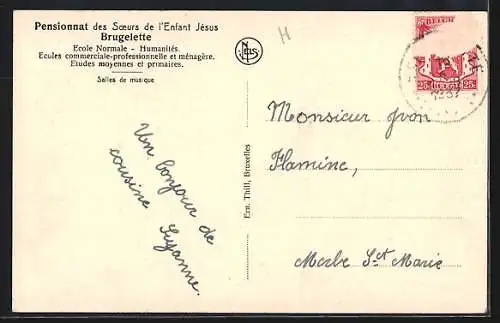 Pensionnat des Sœurs de l'Enfant Jésus
Brugelette
Ecole Normale - Humanités.
Ecoles commerciale-professionnelle et ménagère.
Etudes moyennes et primaires.
Salles de musique
NELS
H
25 25
Ern. Thill, Bruxelles
Un bonjour de
cousine Suzanne.
Monsieur Yvon
Flamine,
Merbe Ste Marie